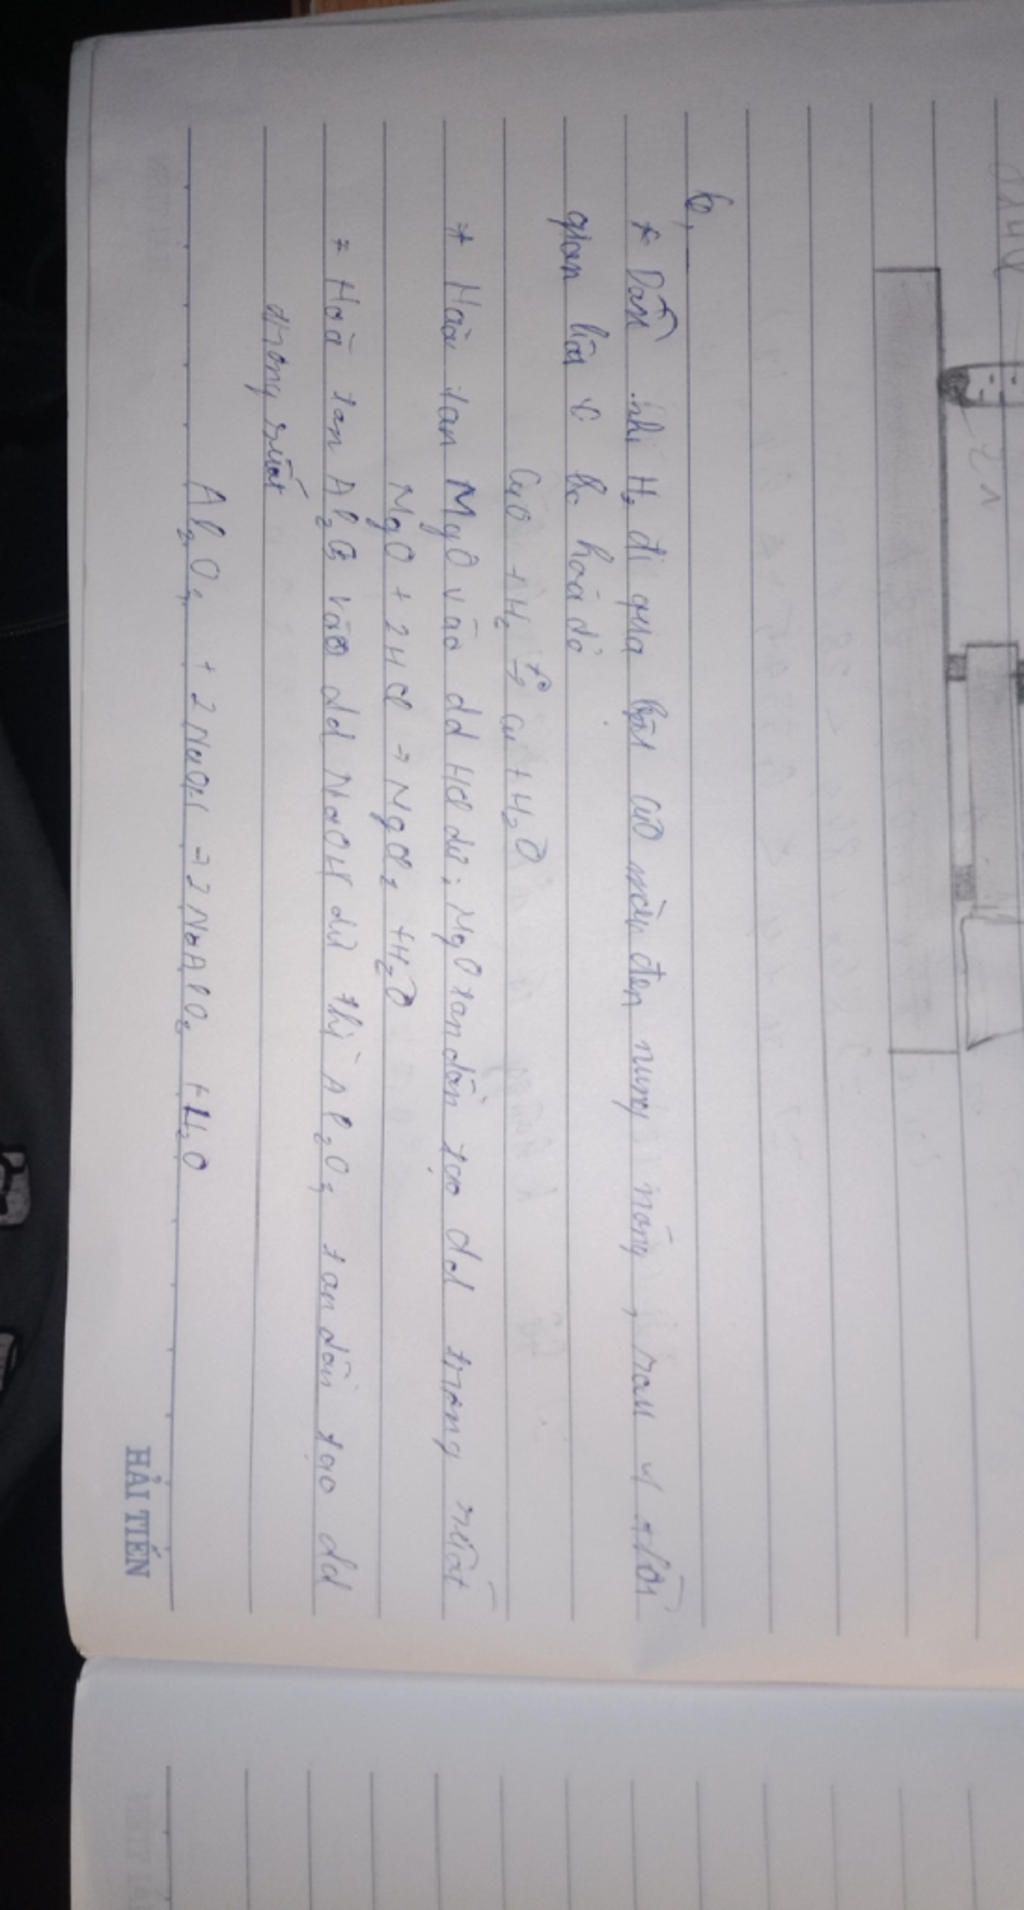 b,
* Dẫn khí H₂ đi qua bột CuO màu đen nung nóng, sau 1 thời
gian bị hoá đỏ
CuO + H₂ t°→ Cu + H₂O
* Hòa tan MgO vào dd HCl dư; MgO tan dần tạo dd trong suốt
MgO + 2HCl → MgCl₂ + H₂O
* Hoà tan Al₂O₃ vào dd NaOH dư thì Al₂O₃ tan dần tạo dd
trong suốt
Al₂O₃ + 2NaOH → 2NaAlO₂ + H₂O
HẢI TIẾN
Zn